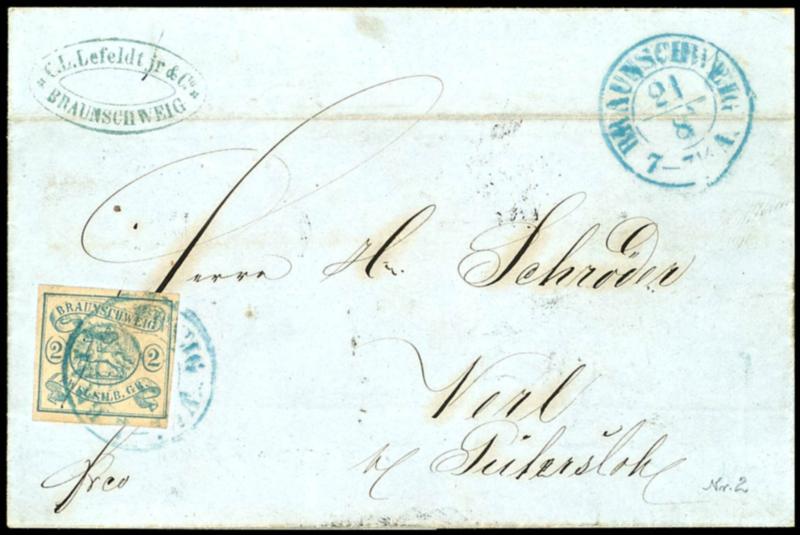 C.L. Lefeldt jr & Co
BRAUNSCHWEIG
BRAUNSCHWEIG
21
8
7-7½ A.
Herrn Hn. Schröder
BRAUNSCHWEIG
2 2
SILB. GR.
Verl
Gütersloh
frco
Nr. 2